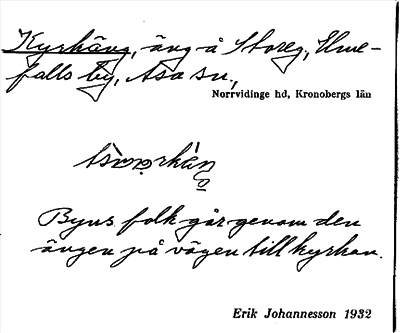 Kyrkäng, äng å Storeg, Ulve-
falls by, Asa sn.,
Norrvidinge hd, Kronobergs län
Byns folk går genom den
ängen på vägen till kyrkan.
Erik Johannesson 1932